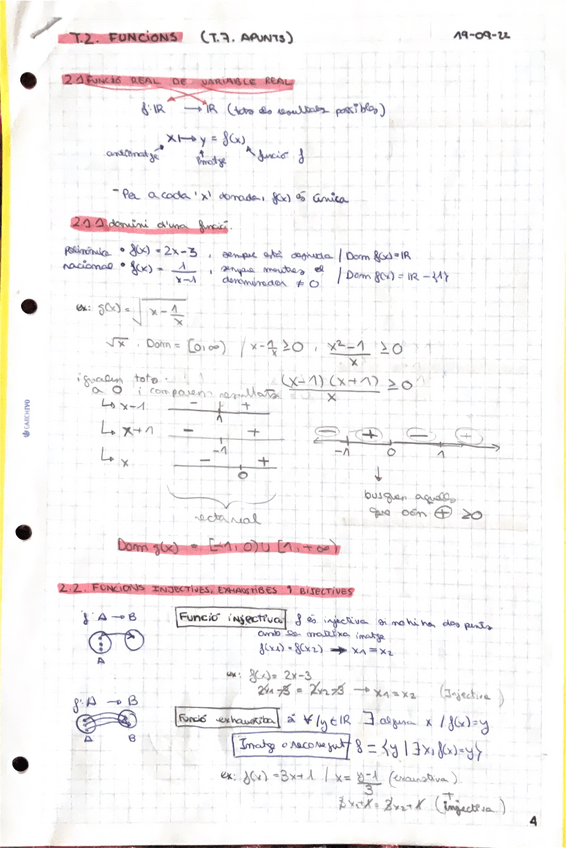 T.2. FUNCIONS (T.7. APUNTS) 19-09-22
2.1 FUNCIÓ REAL DE VARIABLE REAL
f: IR → IR (tots els resultats possibles)
x ↦ y = f(x)
antiimatge imatge funció f
- Per a cada 'x' donada, f(x) és única
2.1.1 domini d'una funció
polinòmica • f(x) = 2x-3 , sempre està definida / Dom f(x) = IR
racional • f(x) = 1/(x-1) , sempre mentres el denominador ≠ 0 / Dom f(x) = IR - {1}
ex: g(x) = √(x - 1/x)
√x . Dom = [0,∞) / x - 1/x ≥ 0 , (x²-1)/x ≥ 0
igualem tot (x-1)(x+1)/x ≥ 0
a 0 i comparem resultats
↳ x-1 - + 1
↳ x+1 - + -1
↳ x - + 0
- + - +
-1 0 1
recta real
busquem aquells
que són ⊕ ≥ 0
Dom g(x) = [-1,0) ∪ [1,+∞)
CARCHIVO
2.2. FUNCIONS INJECTIVES, EXHAUSTIBES I BISECTIVES
f: A → B
A
Funció injectiva f és injectiva si no hi ha dos punts
amb la mateixa imatge
f(x1) = f(x2) → x1 = x2
ex: f(x) = 2x-3
2x1-3 = 2x2-3 → x1 = x2 (Injectiva)
f: A → B
A B
Funció exhaustiba si ∀ / y ∈ IR ∃ alguna x / f(x) = y
Imatge o recorregut f = {y | ∃x, f(x) = y}
ex: f(x) = 3x+1 / x = (y-1)/3 (exhaustiva)
+
3x1+1 = 3x2+1 (injectiva)
4